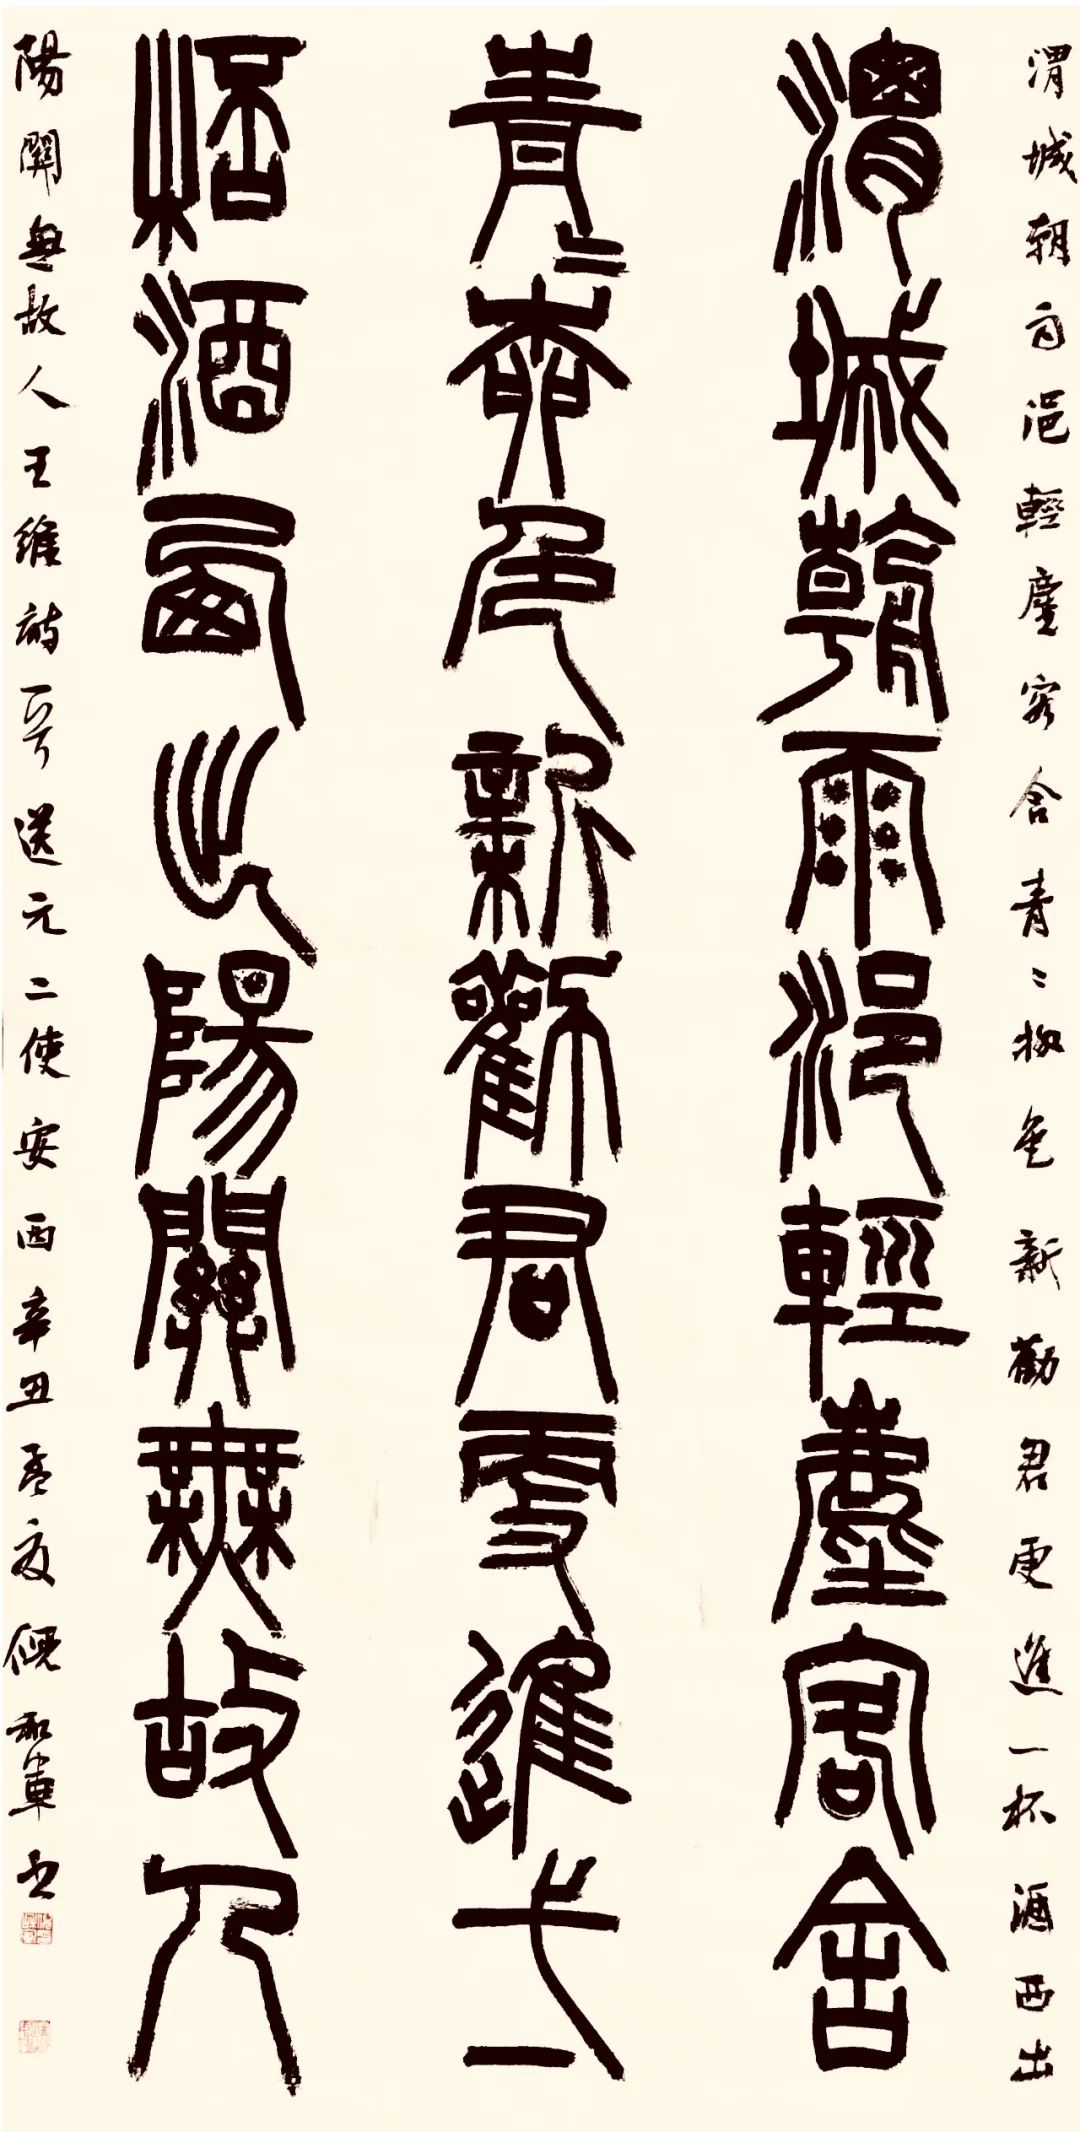 渭城朝雨浥輕塵客舍青〻柳色新勸君更進一杯酒西出
渭城朝雨浥輕塵客舍
青〻柳色新勸君更進弌
桮酒西出陽關無故人
陽關無故人王維詩一首送元二使安西辛丑孟夏倪和軍書